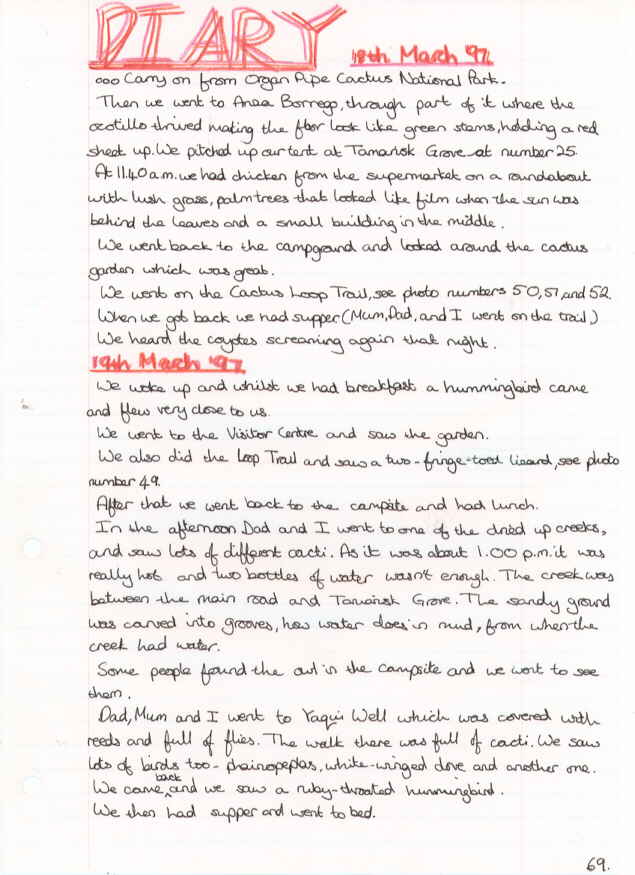 DIARY 18th March '97
ooo Carry on from Organ Pipe Cactus National Park.
Then we went to Anza Borrego, through part of it where the
ocotillo thrived making the floor look like green stems, holding a red
sheet up. We pitched up our tent at Tamarisk Grove at number 25.
At 11.40 a.m. we had chicken from the supermarket on a roundabout
with lush grass, palm trees that looked like film when the sun was
behind the leaves and a small building in the middle.
We went back to the campground and looked around the cactus
garden which was great.
We went on the Cactus Loop Trail, see photo numbers 50, 51, and 52.
When we got back we had supper (Mum, Dad, and I went on the trail.)
We heard the coyotes screaming again that night.
19th March '97
We woke up and whilst we had breakfast a hummingbird came
and flew very close to us.
We went to the Visitor Centre and saw the garden.
We also did the Loop Trail and saw a two-fringe-toed lizard, see photo
number 49.
After that we went back to the campsite and had lunch.
In the afternoon Dad and I went to one of the dried up creeks,
and saw lots of different cacti. As it was about 1.00 p.m. it was
really hot and two bottles of water wasn't enough. The creek was
between the main road and Tamarisk Grove. The sandy ground
was carved into grooves, how water does in mud, from when the
creek had water.
Some people found the owl in the campsite and we went to see
them.
Dad, Mum and I went to Yaqui Well which was covered with
reeds and full of flies. The walk there was full of cacti. We saw
lots of birds too - phainopeplas, white-winged dove and another one.
We came back, and we saw a ruby-throated hummingbird.
We then had supper and went to bed.
69.